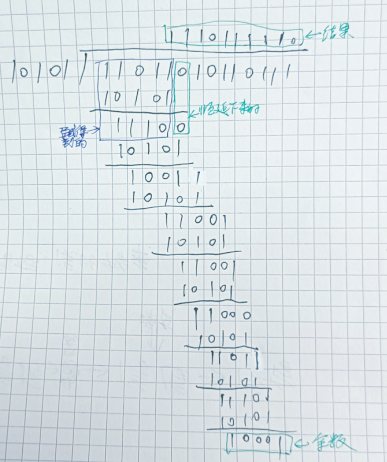 1110111110 ←结果
10101 11011010110111
10101
←顺延下来的
11100
10101
10011
10101
11001
10101
11001
10101
11000
10101
11011
10101
11101
10101
10001 ←余数